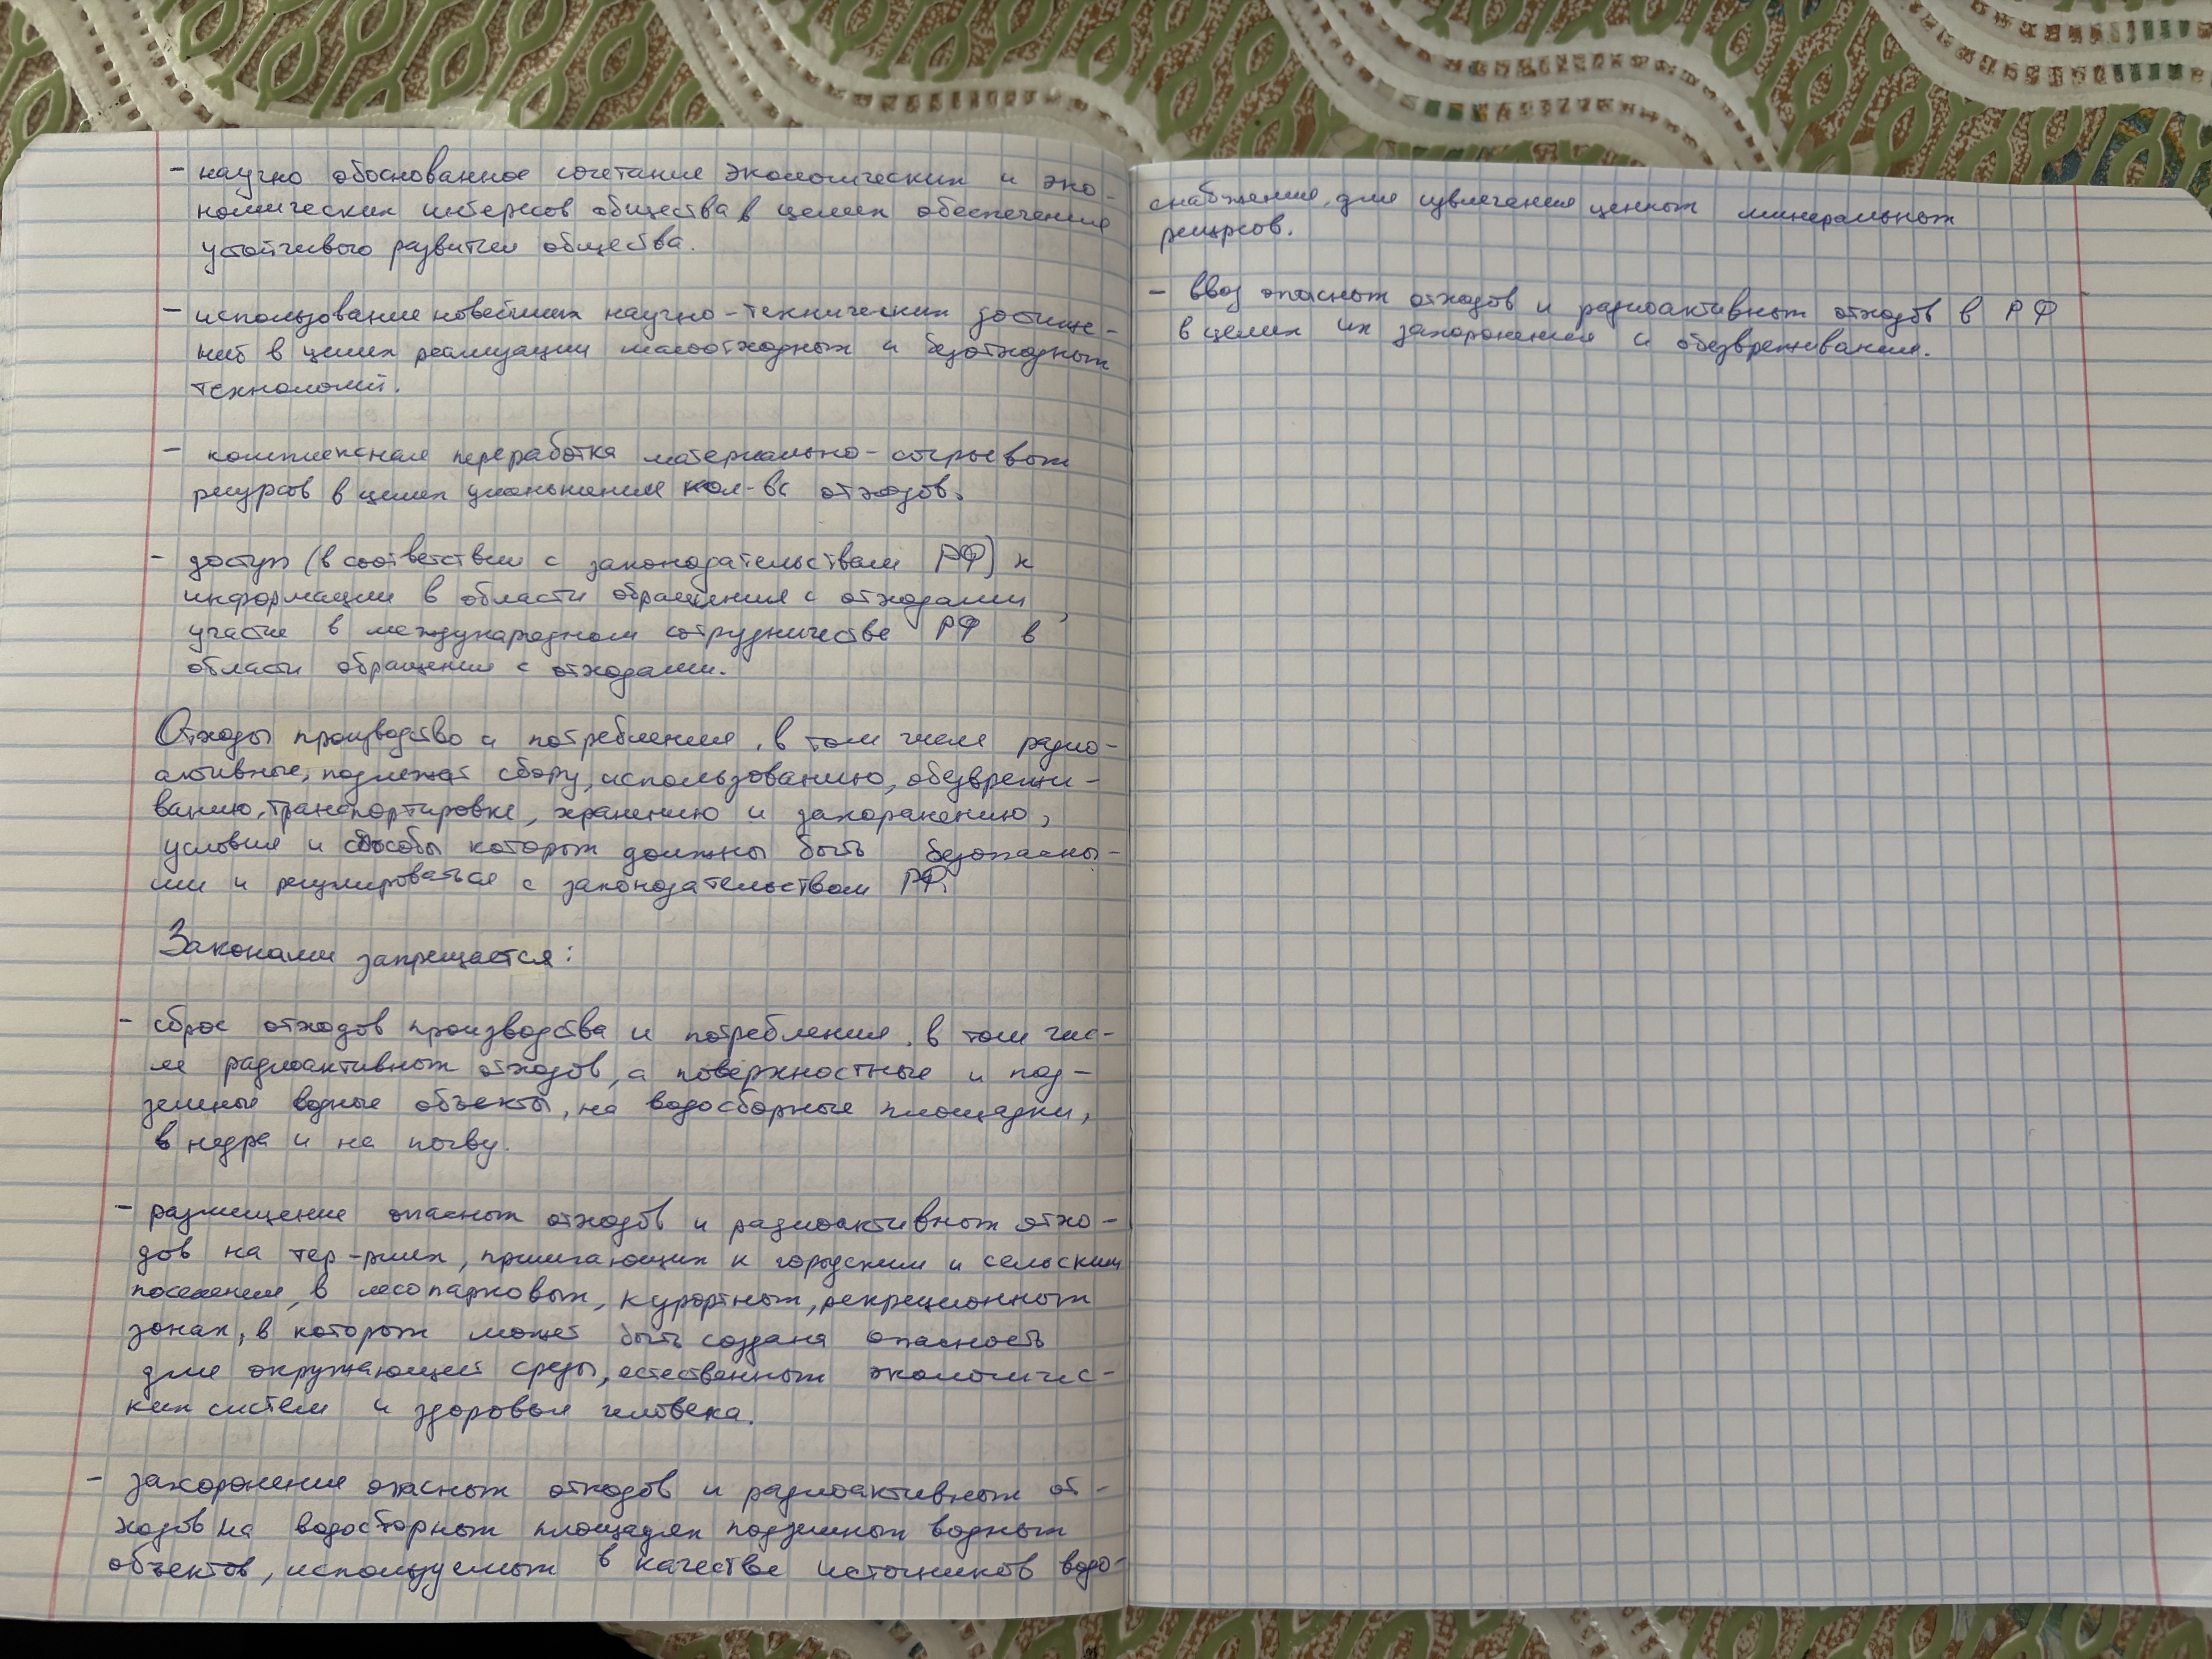 - научно обоснованное сочетание экологических и эко-
номических интересов общества в целях обеспечения
устойчивого развития общества.
- использование новейших научно-технических достиже-
ний в целях реализации малоотходных и безотходных
технологий.
- комплексная переработка материально-сырьевых
ресурсов в целях уменьшения кол-ва отходов.
- доступ (в соответствии с законодательством РФ) к
информации в области обращения с отходами,
участие в международном сотрудничестве РФ в
области обращения с отходами.
Отходы производство и потребления, в том числе радио-
активные, подлежат сбору, использованию, обезврежи-
ванию, транспортировке, хранению и захоранению,
условия и способы которых должны быть безопасны-
ми и регулироваться с законодательством РФ.
Законами запрещается:
- сброс отходов производства и потребления, в том чис-
ле радиоактивных отходов, а поверхностные и под-
земные водные объекты, на водосборные площадки,
в недра и на почву.
- размещение опасных отходов и радиоактивных отхо-
дов на тер-риях, прилегающих к городским и сельским
поселениям, в лесопарковых, курортных, рекреционных
зонах, в которых может быть создана опасность
для окружающей среды, естественных экологичес-
ких систем и здоровья человека.
- захоронения опасных отходов и радиоактивных от-
ходов на водосборных площадях подземных водных
объектов, используемых в качестве источников водо-
снабжения, для извлечения ценных минеральных
ресурсов.
- ввоз опасных отходов и радиоактивных отходов в РФ
в целях их захоронения и обезвреживания.